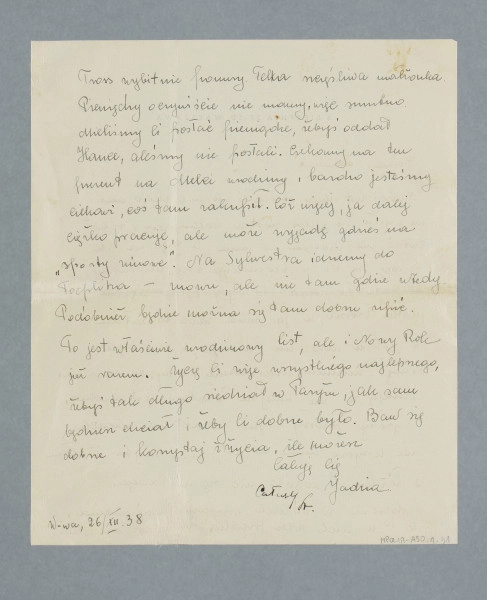 wybitnie ponury. Felka szczęśliwa małżonka
oczywiście nie mamy, więc smutno
Mieliśmy Ci posłać pieniądze, żebyś oddał
Hance, aleśmy nie posłali. Czekamy na ten
prezent na Melci urodziny, bardzo jesteśmy
ciekawi, coś tam zakupił. Cóż więcej, ja dalej
ciężko pracuję, ale może wyjadę gdzieś na
„sporty zimowe". Na Sylwestra idziemy do
Toeplitza – znowu, ale nie tam gdzie wtedy
Podobnież będzie można się tam dobrze upić.
To jest właśnie urodzinowy list, ale i Nowy Rok
już razem. Życzę Ci więc wszystkiego najlepszego,
żebyś tak długo siedział w Paryżu, jak sam
będziesz chciał i żeby Ci dobrze było. Baw się
dobrze i korzystaj z życia, ile możesz
Całuję Cię
Jadzia
Całusy
W-wa, 26/XII.38